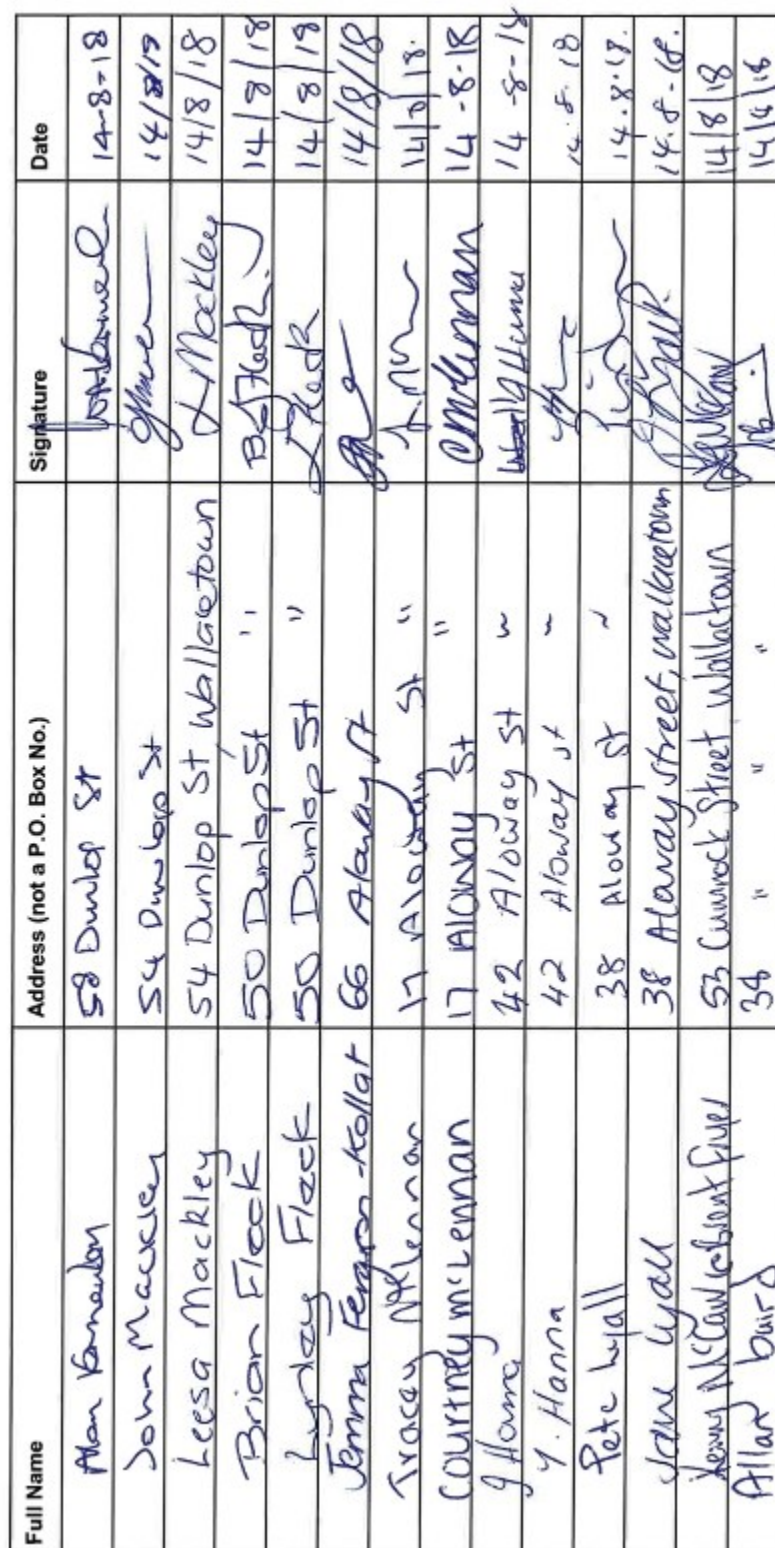 Full Name Address (not a P.O. Box No.) Signature Date
Alan 58 Dunlop St 14-8-18
John Mackley 54 Dunlop St 14/8/18
Leesa Mackley 54 Dunlop St Wallacetown L Mackley 14/8/18
Brian Fleck 50 Dunlop St " B Fleck 14/8/18
Lynley Fleck 50 Dunlop St " L Fleck 14/8/18
Jemma Ferguson-Kollat 66 Aloway St 14/8/18
Tracey McLennan 17 Aloway St " 14/8/18.
Courtney McLennan 17 Aloway St " CMcLennan 14-8-18
J Hanna 42 Aloway St " Hanna 14-8-18
Y. Hanna 42 Aloway St " 14.8.18
Pete Lyall 38 Aloway St " 14.8.18.
Jane Lyall 38 Aloway Street, Wallacetown 14.8-18.
McCaw & Brent Fryer 53 Cumnock Street Wallactown 14/8/18
Allan Baird 38 " " " 14/8/18